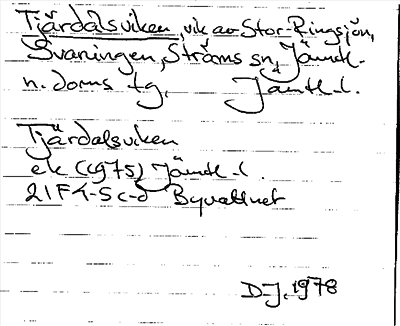 Tjärdalsviken, vik av Stor-Ringsjön,
Svaningen, Ströms sn, Jämtl.
n. doms tg, Jämtl. l.
Tjärdalsviken
ek (1975) Jämtl. l.
21F 4-5 c-d Byvattnet
D-J. 1978